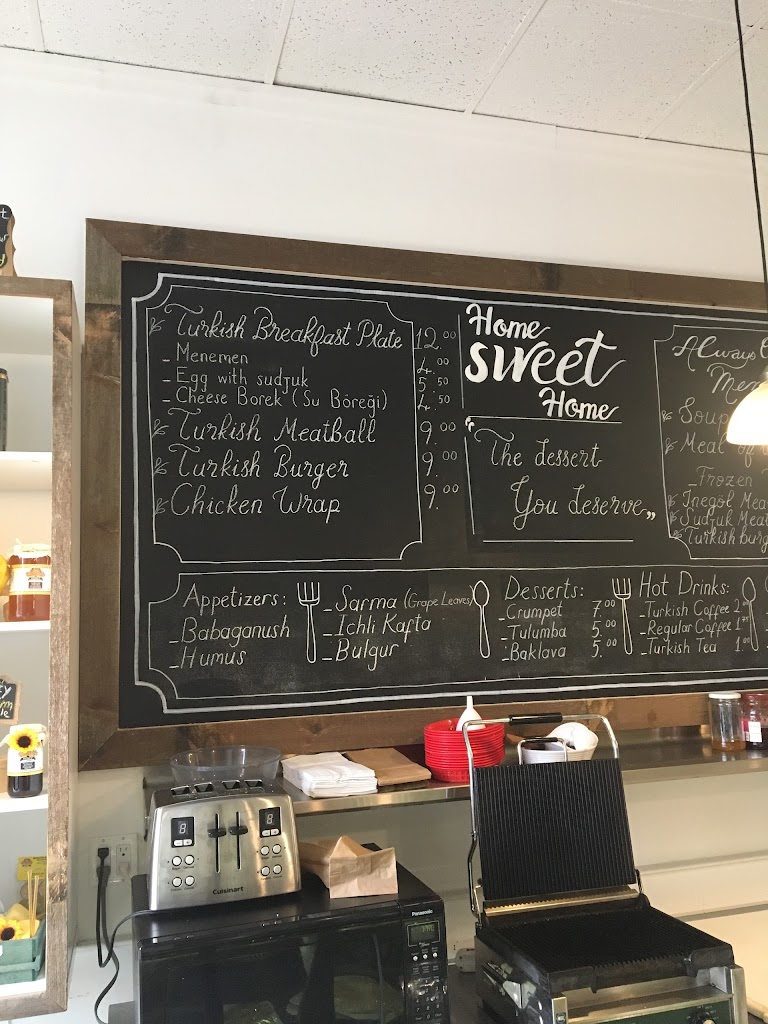 Turkish Breakfast Plate 12.00
- Menemen 4.00
- Egg with sudjuk 5.50
- Cheese Borek (Su Böreği) 4.50
Turkish Meatball 9.00
Turkish Burger 9.00
Chicken Wrap 9.00
Home
sweet
Home
"The dessert
You deserve"
Always
Soup
Meal of
- Frozen
Inegöl Mea
Sudjuk Meat
Turkish burg
Appetizers:
- Babaganush
- Humus
- Sarma (Grape Leaves)
- Ichli Kafta
- Bulgur
Desserts:
- Crumpet 7.00
- Tulumba 5.00
- Baklava 5.00
Hot Drinks:
- Turkish Coffee 2
- Regular Coffee 1.75
- Turkish Tea 1.00
Cuisinart
Panasonic